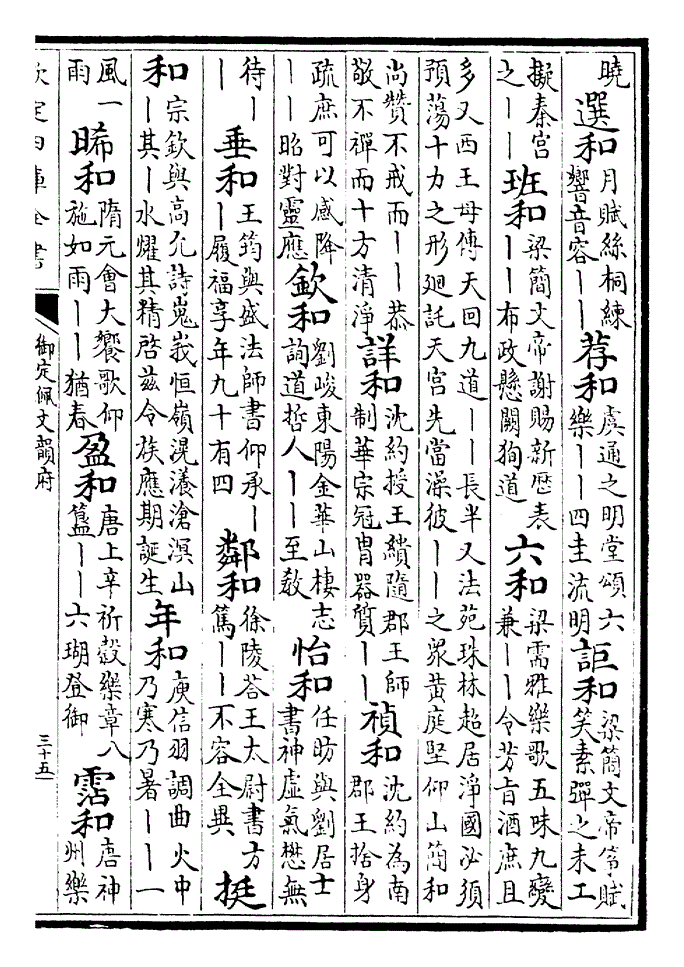 曉選和月賦絲桐練響音容丨丨荐和虞通之明堂頌六樂丨丨四圭流明詎和梁簡文帝箏賦笑素彈之未工
擬秦宮之丨丨班和梁簡文帝謝賜新厯表丨丨布政懸闕狥道六和梁需雅樂歌五味九變兼丨丨令芳旨酒庶且
多又西王母傳天回九道丨丨長半又法苑珠林超居淨國必須預蕩十力之形廻託天宮先當澡彼丨丨之衆黄庭堅仰山簡和
尚贊不戒而丨丨恭敬不禪而十方清淨詳和沈約授王繢隨郡王師制華宗冠胄器質丨丨禎和沈約為南郡王捨身
疏庶可以感降丨丨昭對靈應欽和劉峻東陽金華山棲志詢道哲人丨丨至教怡和任昉與劉居士書神虚氣懋無
待丨丨垂和王筠與盛法師書仰承丨丨履福享年九十有四鄰和徐陵荅王太尉書方篤丨丨不容全異挺
和宗欽與高允詩嵬峩恒嶺滉瀁滄溟山丨其丨水耀其精啓兹令族應期誕生年和庾信羽調曲火中乃寒乃暑丨丨一
風一雨晞和隋元會大饗歌仰施如雨丨丨猶春盈和唐上辛祈穀樂章八簋丨丨六瑚登御霑和唐神州樂
欽定四庫全書
御定佩文韻府
三十五